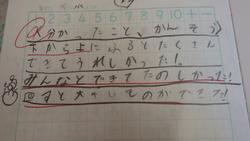 2 3 4 5 6 7 8 9 10 + −
分かったこと、かんそう
下から上にふるとたくさん
できてうれしかった!。
みんなとできてたのしかった!
回すと大きいものができた!